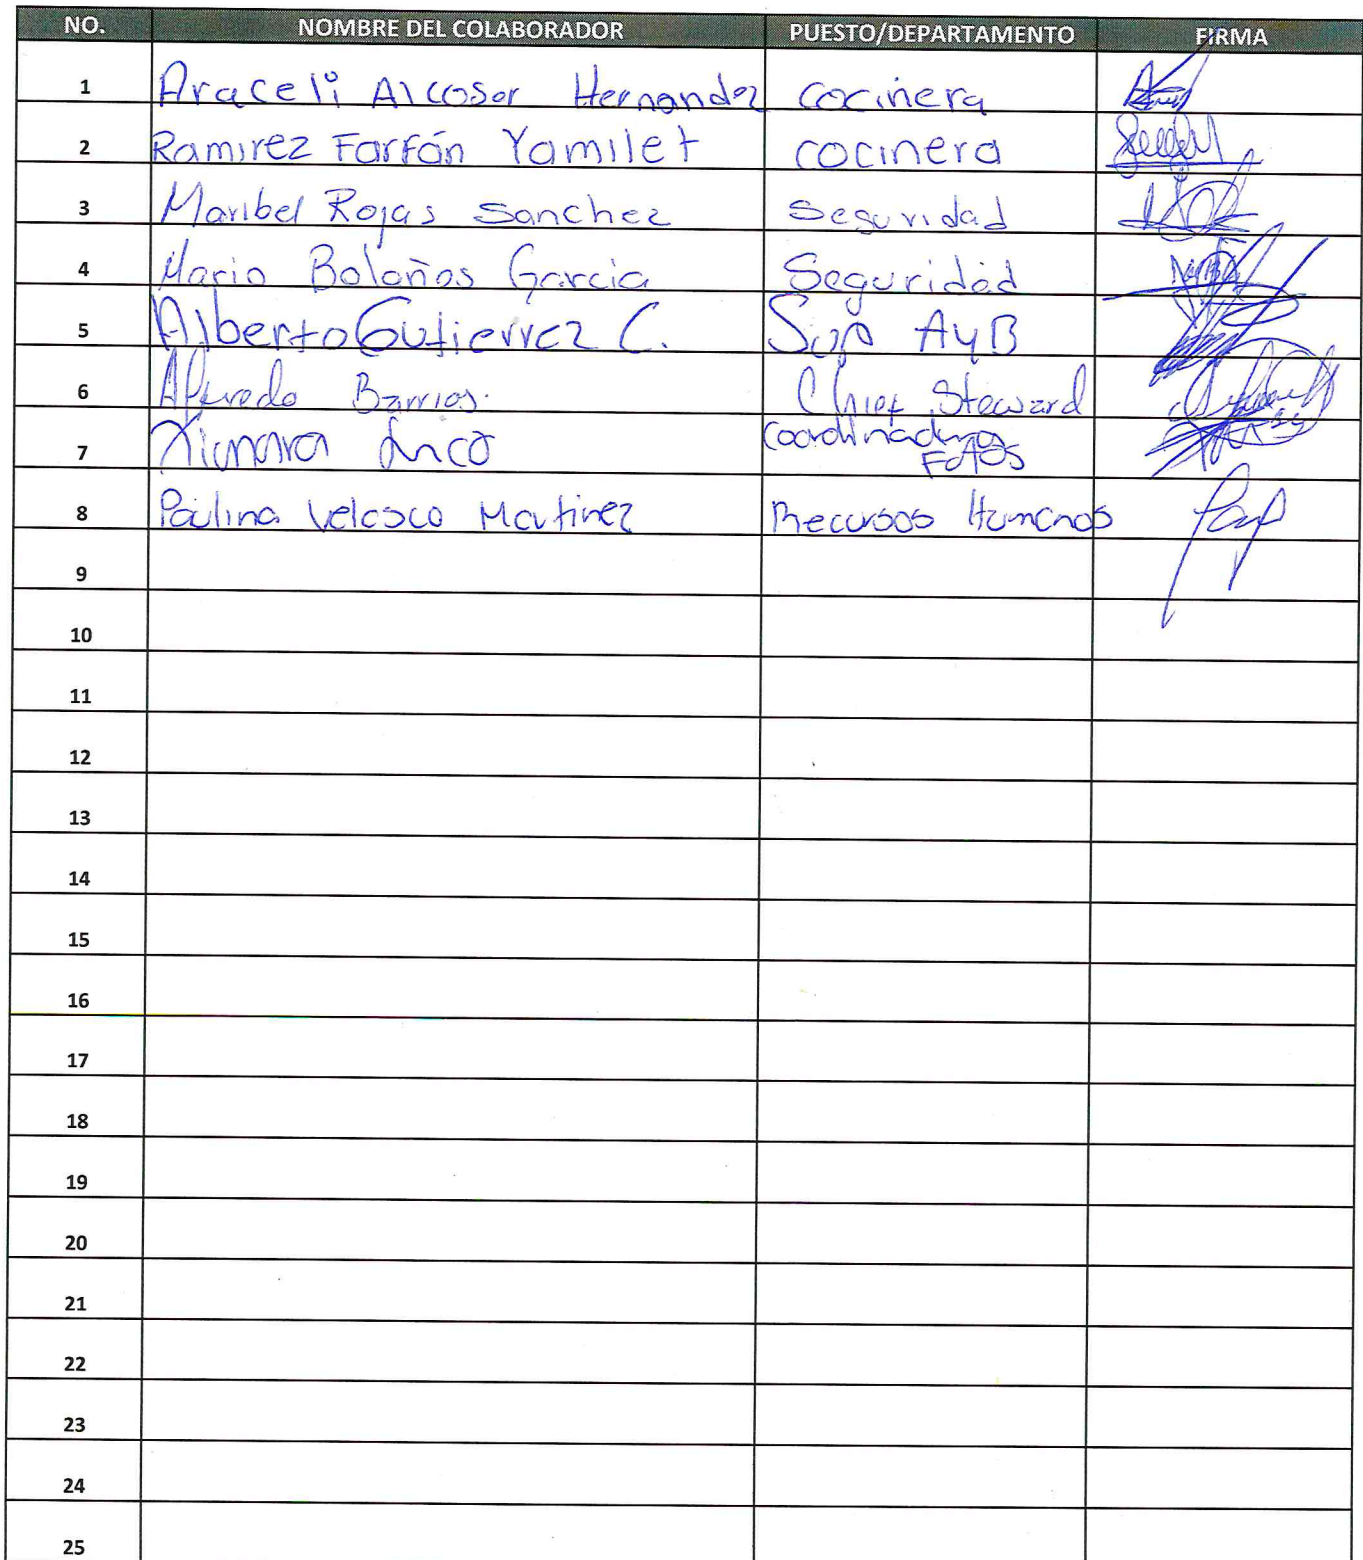 NO. NOMBRE DEL COLABORADOR PUESTO/DEPARTAMENTO FIRMA
1 Araceli Alcoser Hernandez cocinera
2 Ramirez Farfán Yamilet cocinera
3 Maribel Rojas Sanchez Seguridad
4 Mario Bolaños Garcia Seguridad
5 Alberto Gutierrez C. Sup AyB
6 Alfredo Barrios. Chief Steward
7 Coordinadora
Fotos
8 Paulina Velasco Martinez Recursos Humanos
9
10
11
12
13
14
15
16
17
18
19
20
21
22
23
24
25